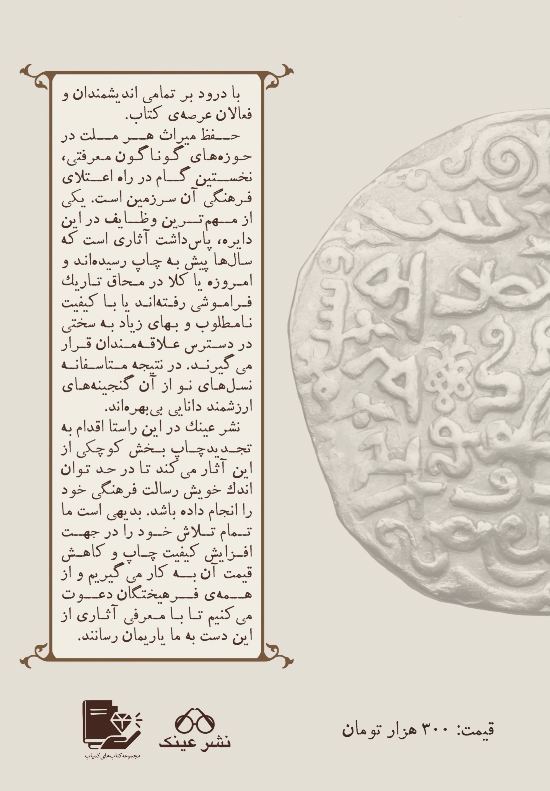 با درود بر تمامی اندیشمندان و
فعالان عرصه‌ی کتاب.
حفظ میراث هر ملت در
حوزه‌های گوناگون معرفتی،
نخستین گام در راه اعتلای
فرهنگی آن سرزمین است. یکی
از مهم‌ترین وظایف در این
دایره، پاس‌داشت آثاری است که
سال‌ها پیش به چاپ رسیده‌اند و
امروزه یا کلا در محاق تاریك
فراموشی رفته‌اند یا با کیفیت
نامطلوب و بهای زیاد به سختی
در دسترس علاقه‌مندان قرار
می‌گیرند. در نتیجه متاسفانه
نسل‌های نو از آن گنجینه‌های
ارزشمند دانایی بی‌بهره‌اند.
نشر عینك در این راستا اقدام به
تجدیدچاپ بخش کوچکی از
این آثار می‌کند تا در حد توان
اندك خویش رسالت فرهنگی خود
را انجام داده باشد. بدیهی است ما
تمام تلاش خود را در جهت
افزایش کیفیت چاپ و کاهش
قیمت آن به کار می‌گیریم و از
همه‌ی فرهیختگان دعوت
می‌کنیم تا با معرفی آثاری از
این دست به ما یاریمان رسانند.
قیمت: ۳۰۰ هزار تومان
نشر عینک
مجموعه کتاب‌های کمیاب